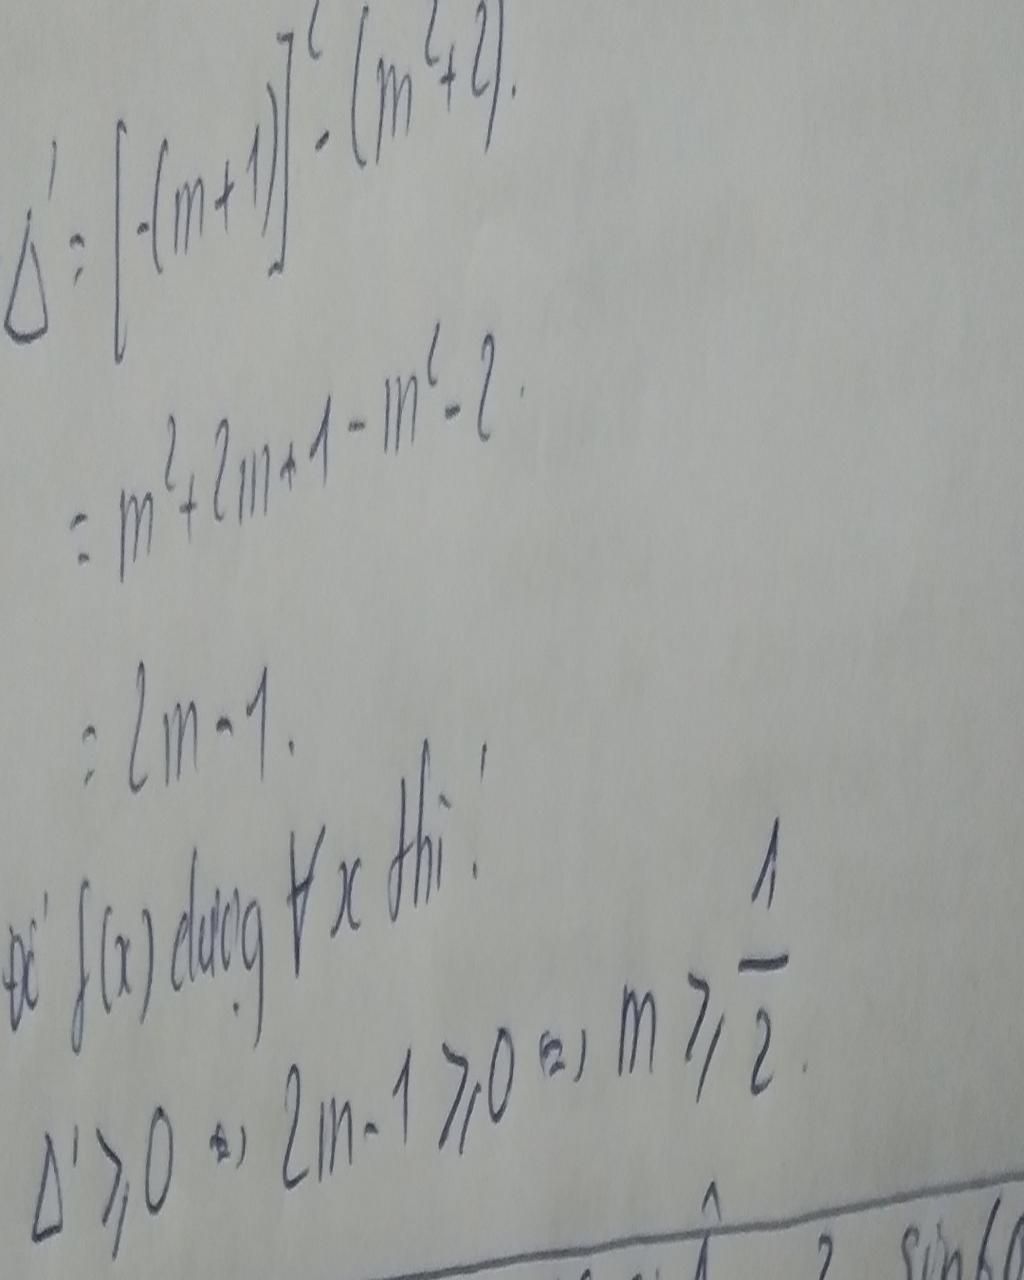 Δ' = [-(m+1)]² - (m²+2).
= m² + 2m + 1 - m² - 2.
= 2m - 1.
Để f(x) dương ∀x thì:
Δ' ≥ 0 ⇔ 2m - 1 ≥ 0 ⇔ m ≥ 1/2.